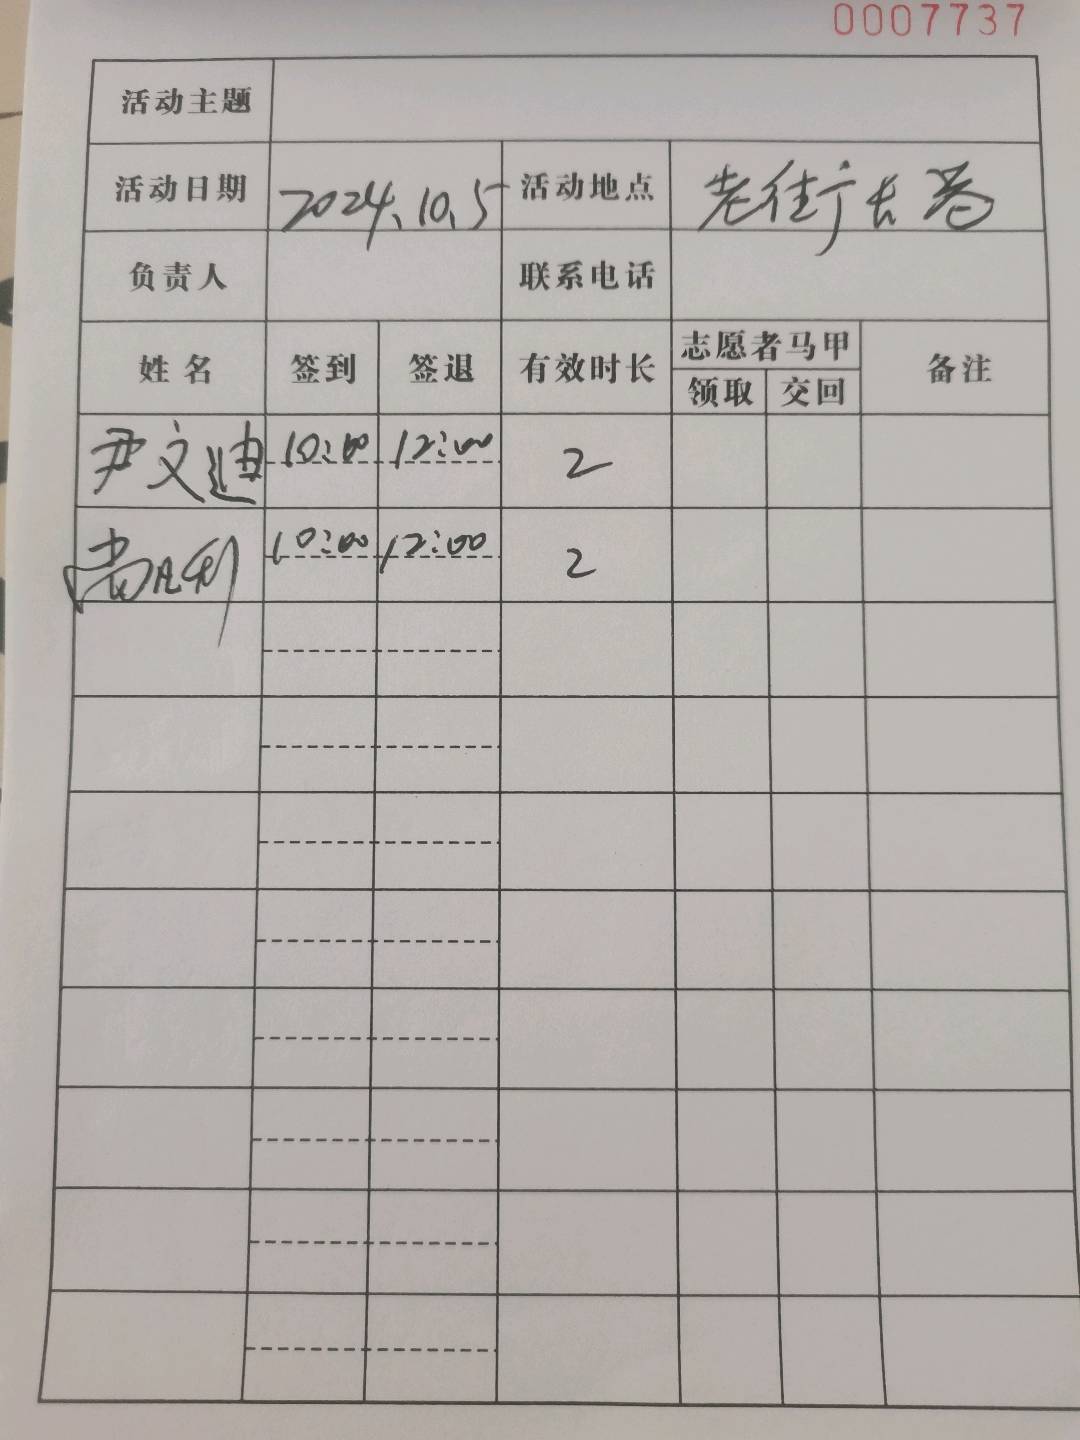 0007737
活动主题
活动日期 2024.10.5 活动地点 老街广长卷
负责人 联系电话
姓名 签到 签退 有效时长 志愿者马甲 备注
领取 交回
尹文迪 10:00 12:00 2
10:00 12:00 2